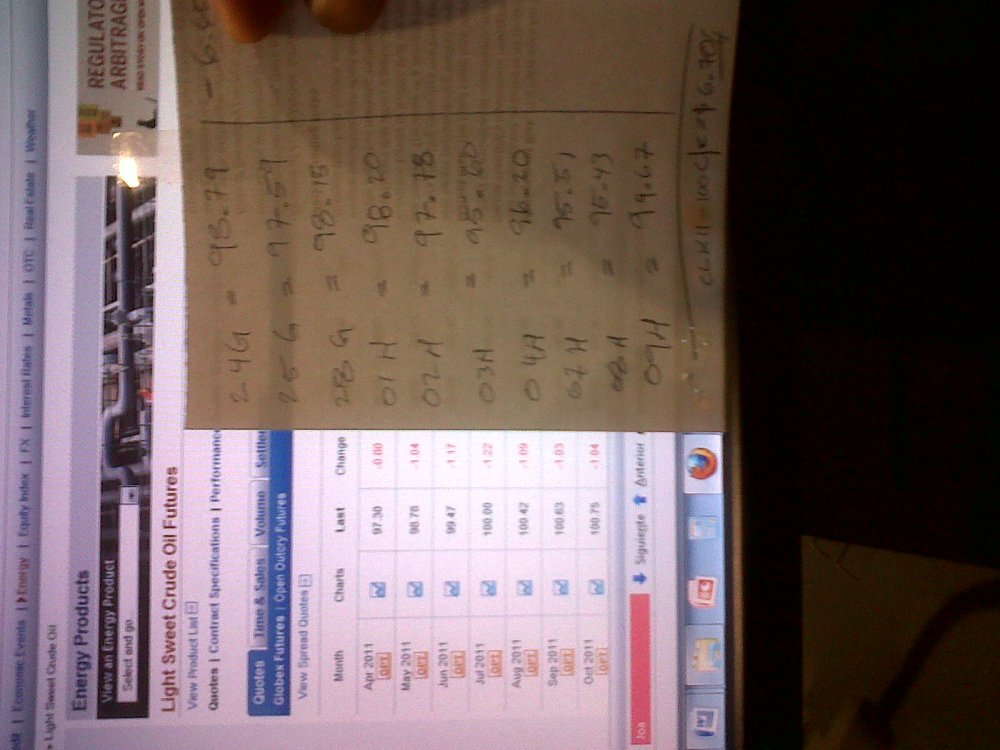 REGULATO
ARBITRAG
Economic Events | Energy | Equity Index | FX | Interest Rates | Metals | OTC | Real Estate | Weather
Light Sweet Crude Oil
Energy Products
View an Energy Product
Select and go
Light Sweet Crude Oil Futures
View Product List
Quotes | Contract Specifications | Performance
Quotes | Time & Sales | Volume | Settle
Globex Futures | Open Outcry Futures
View Spread Quotes
Month Charts Last Change
Apr 2011 OPT 97.30 -0.80
May 2011 OPT 98.78 -1.04
Jun 2011 OPT 99.47 -1.17
Jul 2011 OPT 100.00 -1.22
Aug 2011 OPT 100.42 -1.09
Sep 2011 OPT 100.63 -1.03
Oct 2011 OPT 100.75 -1.04
Joa
Siguiente Anterior
24G = 98.79
25G = 97.59
28G = 98.15
01H = 98.20
02H = 97.78
03H =
04H = 96.20
07H = 95.51
08H = 95.43
09H = 99.67